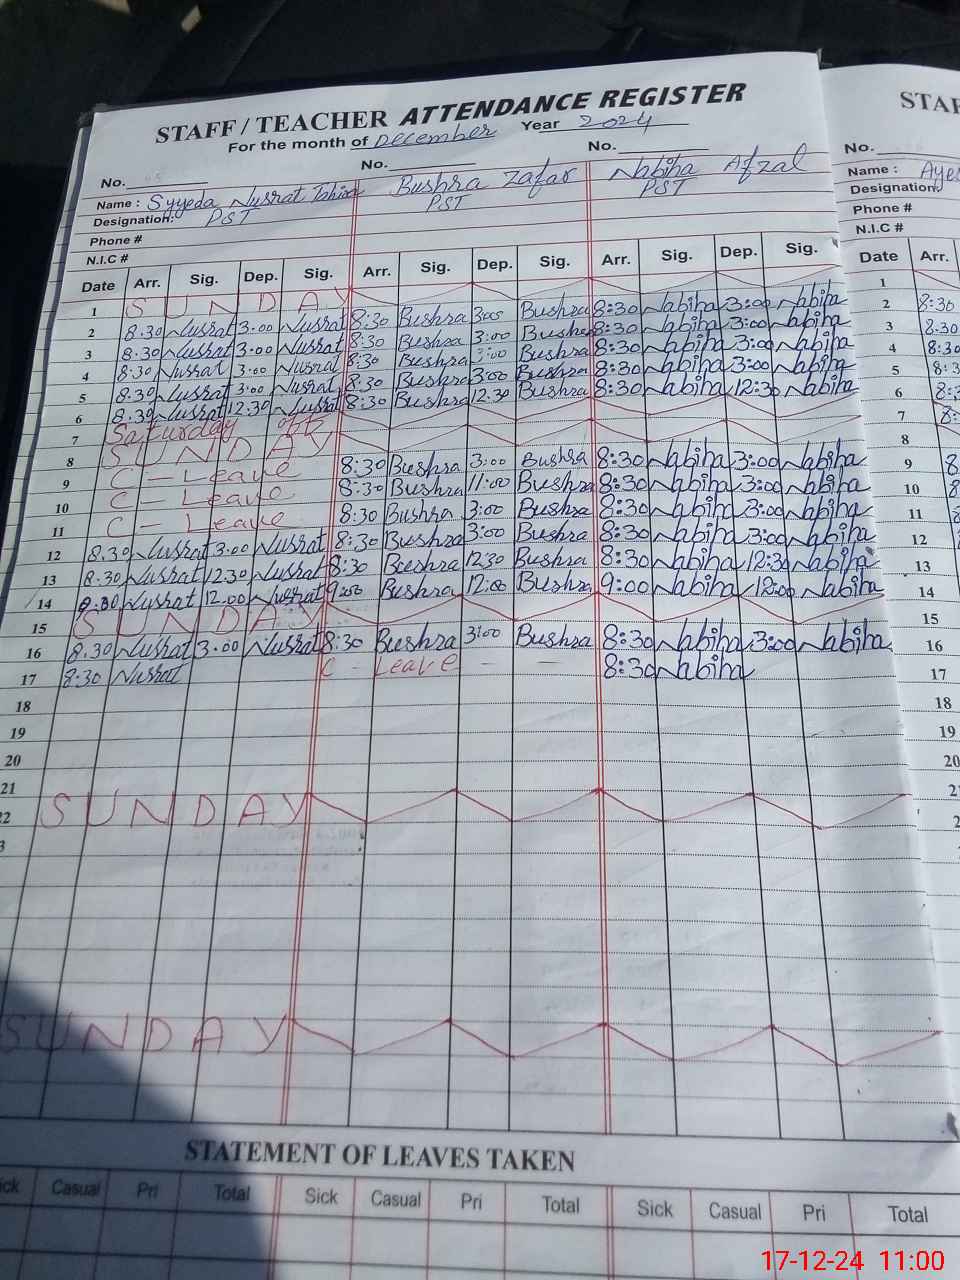 STAFF / TEACHER ATTENDANCE REGISTER
STAF
For the month of December Year 2024
No. No. No. No.
Name : Syyeda Nusrat Bushra Zafar Nabiha Afzal Name : Aye
Designation: PST PST PST Designation
Phone # Phone #
N.I.C # N.I.C #
Date Arr. Sig. Dep. Sig. Arr. Sig. Dep. Sig. Arr. Sig. Dep. Sig. Date Arr.
1 SUNDAY 1
2 8.30 Nusrat 3.00 Nusrat 8:30 Bushra 3:00 Bushra 8:30 Nabiha 3:00 Nabiha 2 8:30
3 8.30 Nusrat 3.00 Nusrat 8:30 Bushra 3:00 Bushra 8:30 Nabiha 3:00 Nabiha 3 8:30
4 8.30 Nusrat 3.00 Nusrat 8:30 Bushra 3:00 Bushra 8:30 Nabiha 3:00 Nabiha 4 8:30
5 8.30 Nusrat 3.00 Nusrat 8:30 Bushra 3:00 Bushra 8:30 Nabiha 3:00 Nabiha 5 8:3
6 8.30 Nusrat 12.30 Nusrat 8:30 Bushra 12.30 Bushra 8:30 Nabiha 12:30 Nabiha 6 8:3
7 Saturday off 7 8:
8 SUNDAY 8
9 C - Leave 8:30 Bushra 3:00 Bushra 8:30 Nabiha 3:00 Nabiha 9 8
10 C - Leave 8:30 Bushra 11:00 Bushra 8:30 Nabiha 3:00 Nabiha 10 8
11 C - Leave 8:30 Bushra 3:00 Bushra 8:30 Nabiha 3:00 Nabiha 11 8
12 8.30 Nusrat 3.00 Nusrat 8:30 Bushra 3:00 Bushra 8:30 Nabiha 3:00 Nabiha 12
13 8.30 Nusrat 12.30 Nusrat 8:30 Bushra 12.30 Bushra 8:30 Nabiha 12:30 Nabiha 13
14 8.30 Nusrat 12.00 Nusrat 9:00 Bushra 12:00 Bushra 9:00 Nabiha 12:00 Nabiha 14
15 SUNDAY 15
16 8.30 Nusrat 3.00 Nusrat 8:30 Bushra 3:00 Bushra 8:30 Nabiha 3:00 Nabiha 16
17 8:30 Nusrat C - Leave - - 8:30 Nabiha 17
18 18
19 19
20 20
21 2
22 SUNDAY 2
3
SUNDAY
STATEMENT OF LEAVES TAKEN
ick Casual Pri Total Sick Casual Pri Total Sick Casual Pri Total
17-12-24 11:00